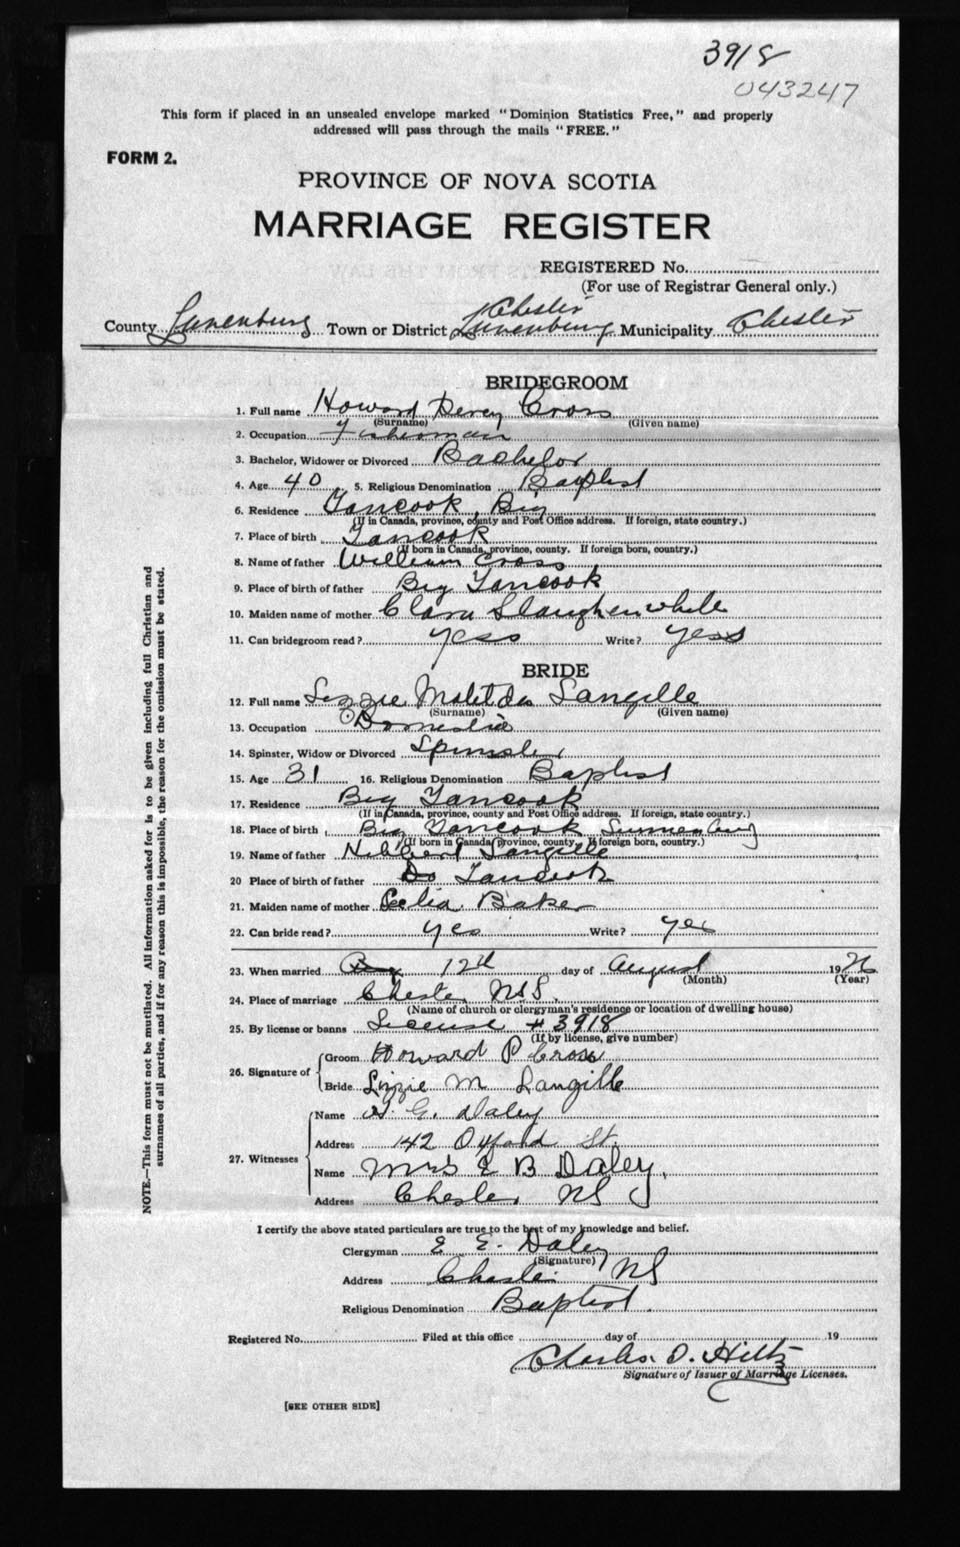 3918
043247
This form if placed in an unsealed envelope marked "Dominion Statistics Free," and properly
addressed will pass through the mails "FREE."
FORM 2.
PROVINCE OF NOVA SCOTIA
MARRIAGE REGISTER
REGISTERED No.
(For use of Registrar General only.)
Chester
County Lunenburg Town or District Lunenburg Municipality Chester
BRIDEGROOM
1. Full name Howard Percy Cross
(Surname) (Given name)
2. Occupation Fisherman
3. Bachelor, Widower or Divorced Bachelor
4. Age 40 5. Religious Denomination Baptist
6. Residence Tancook Big
(If in Canada, province, county and Post Office address. If foreign, state country.)
7. Place of birth Tancook
(If born in Canada, province, county. If foreign born, country.)
8. Name of father William Cross
9. Place of birth of father Big Tancook
10. Maiden name of mother Clara Slaughenwhite
11. Can bridegroom read? yess Write? yess
BRIDE
12. Full name Lizzie Matilda Langille
(Surname) (Given name)
13. Occupation Domestic
14. Spinster, Widow or Divorced Spinster
15. Age 31 16. Religious Denomination Baptist
17. Residence Big Tancook
(If in Canada, province, county and Post Office address. If foreign, state country.)
18. Place of birth Big Tancook Lunenburg
(If born in Canada province, county. If foreign born, country.)
19. Name of father Langille
20 Place of birth of father Do Tancook
21. Maiden name of mother Celia Baker
22. Can bride read? yes Write? yes
23. When married 12th day of August 1926
(Month) (Year)
24. Place of marriage Chester N.S.
(Name of church or clergyman's residence or location of dwelling house)
25. By license or banns License # 3918
(If by license, give number)
26. Signature of
Groom Howard P Cross
Bride Lizzie M Langille
27. Witnesses
Name G. Daley
Address 142 Oxford St.
Name Mrs E B Daley,
Address Chester NS
I certify the above stated particulars are true to the best of my knowledge and belief.
Clergyman E. E. Daley
(Signature)
Address Chester NS
Religious Denomination Baptist.
Registered No. Filed at this office day of 19
Charles O. Hiltz
Signature of Issuer of Marriage Licenses.
[SEE OTHER SIDE]
NOTE.—This form must not be mutilated. All information asked for is to be given including full Christian and
surnames of all parties, and if for any reason this is impossible, the reason for the omission must be stated.